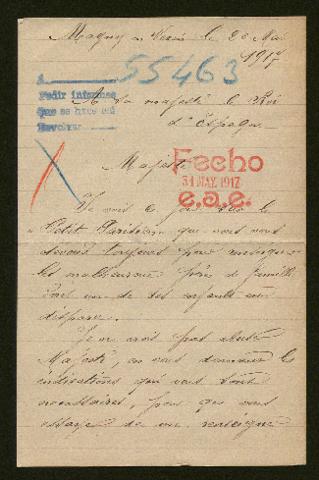 Magny en Vexin le 20 Mai
1917
55463
A
Pedir informes
que se hace así
Devolver
A Sa majesté le Roi
d'Espagne
Majesté
Fecho
31 MAY. 1917
e.a.e.
Je vois ce jour sur le
Petit Parisien que vous vous
dévouez toujours pour renseigner
les malheureux pères de famille
dont un de ses enfants est
disparu.
Je ne crois pas abuser
Majesté, en vous donnant les
indications qui vous sont
nécessaires, pour que vous
essayez de me renseigner